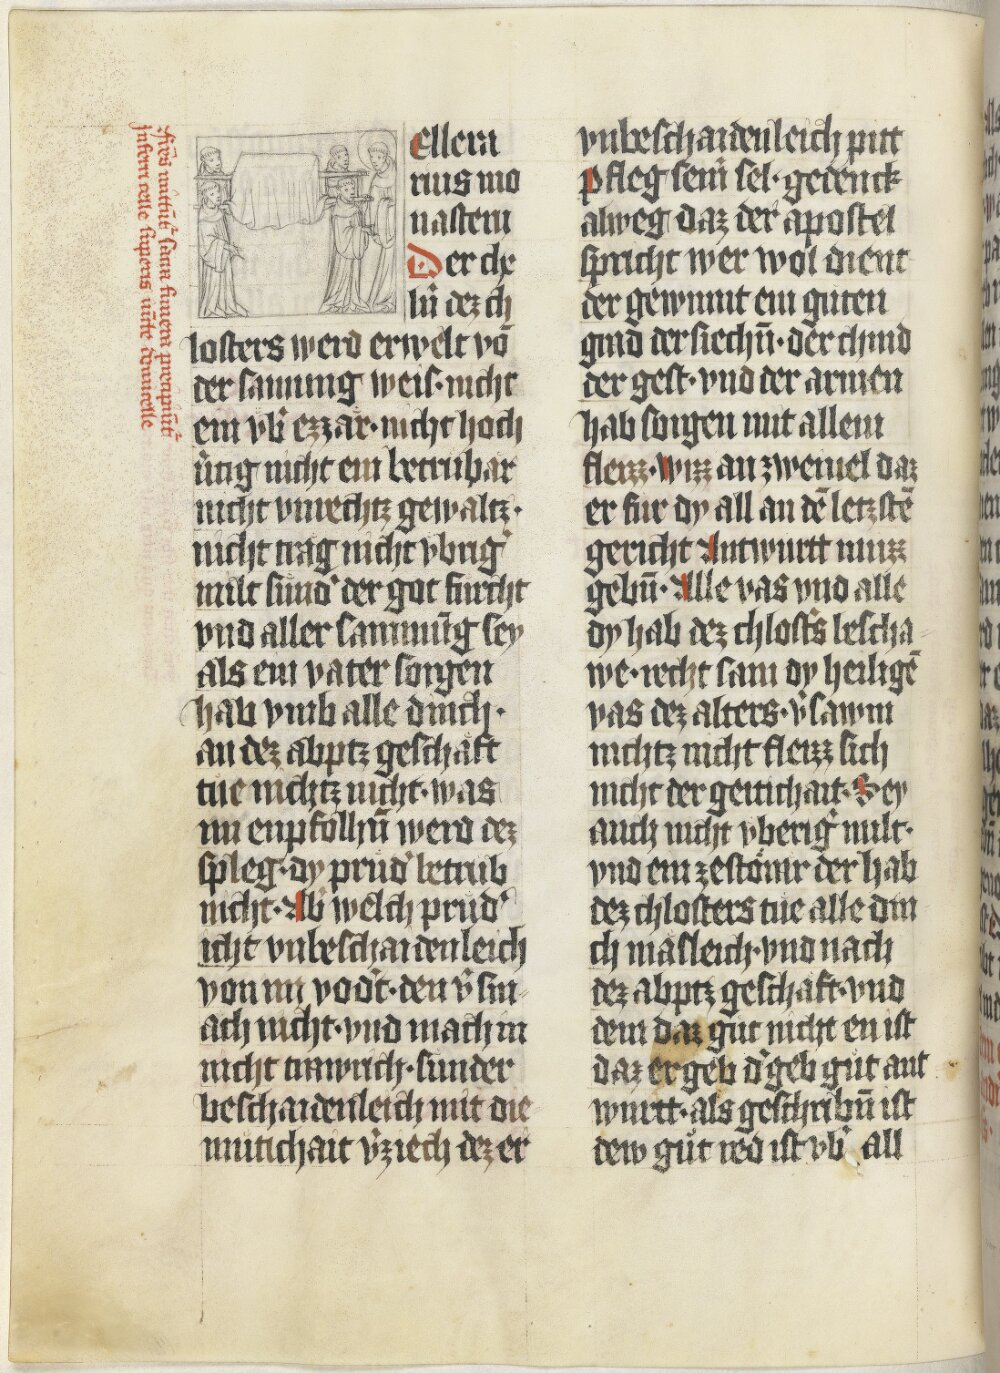 Cellera
rius mo
nasterii
Der che
ln̄ dez ch
losters werd erwelt vō
der samung weis · nicht
ein vb̄ ezzar · nicht hoch
ūtig nicht ein betrubar
nicht vnrechtz gewaltz ·
nicht trag nicht vbrig
milt sund der got furcht
vnd aller sammūg sey
als ein vater sorgen
hab vmb alle dinch ·
an dez abptz geschaft
tue nichtz nicht · was
im enpfolhn̄ werd dez
spleg · dy prud betrub
nicht · Ab welch prud
icht vnbeschaidenleich
von im vodt · den v̄ sm
ach nicht · vnd mach in
nicht trawrich · sunder
beschaidenleich mit die
mutichait v̄ziech dez er
vnbeschaidenleich pitt
Pfleg seinr sel · gedenck
alweg daz der apostel
spricht wer wol dient
der gewinnt ein guten
grad der siechn̄ · der chind
der gest · vnd der armen
hab sorgen mit allem
fleizz · wizz an zweiuel daz
er fur dy all an dē letzstē
gericht Antwurtt muzz
gebn̄ · Alle vas vnd alle
dy hab dez chlosts bescha
we · recht sam dy heiligē
vas dez alters · v̄sawm
nichtz nicht fleizz sich
nicht der geitichait · Sey
auch nicht vberig milt ·
vnd ein zestörar der hab
dez chlosters tue alle din
ch masleich · vnd nach
dez abptz geschaft · vnd
dem daz gut nicht en ist
daz er geb d geb gut ant
wurtt · als geschribn̄ ist
dew gut red ist vb all